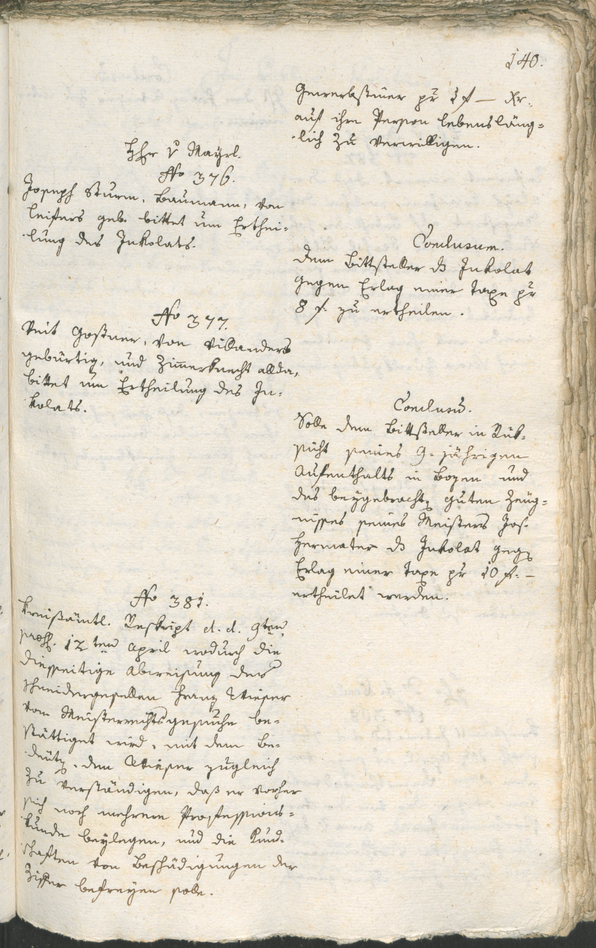 140.
Gewerbsteuer pr 1 f — Xr.
auf ihre Person lebensläng=
lich zu verwilligen.
Hr v Mayrl.
No 376.
Joseph Sturm, Baumann, von
Leifers geb. bittet um Erthei=
lung des Inkolats.
Conclusum.
dem Bittsteller ds Inkolat
gegen Erlag einer Taxe pr
8 f. zu ertheilen.
No 377.
Veit Goßner, von Villanders
gebürtig, und Zimerknecht allda,
bittet um Ertheilung des In=
kolats.
Conclusū.
Solle dem Bittsteller in Rük=
sicht seines 9-jährigen
Aufenthalts in Bozen und
des beygebrachtē guten Zeug=
nisses seines Meisters Jos.
ds Inkolat gegē
Erlag einer Taxe pr 10 f. —
ertheilet werden.
No 381.
Kreisämtl. Reskript d. d. 9ten,
12ten April wodurch die
diesseitige Abweisung des
Schneidergesellen Franz Wieser
vom Meisterrechtsgesuche be=
stättiget wird, mit dem Be=
deutē, den Wieser zugleich
zu verständigen, daß er vorher
sich noch mehrere Professions=
kunde beylegen, und die Kund=
schaften von Beschädigungen der
Ziffer befreyen solle.